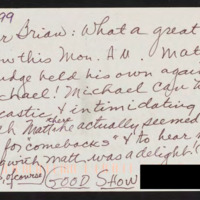 99
r Brian: What a great
w this Mon. A.M. Mat
udge held his own again
chael! Michael can
castic & intimidating
Matt there actually seemed
for comebacks & to hear
with Matt was a delight!
, of course) GOOD SHOW